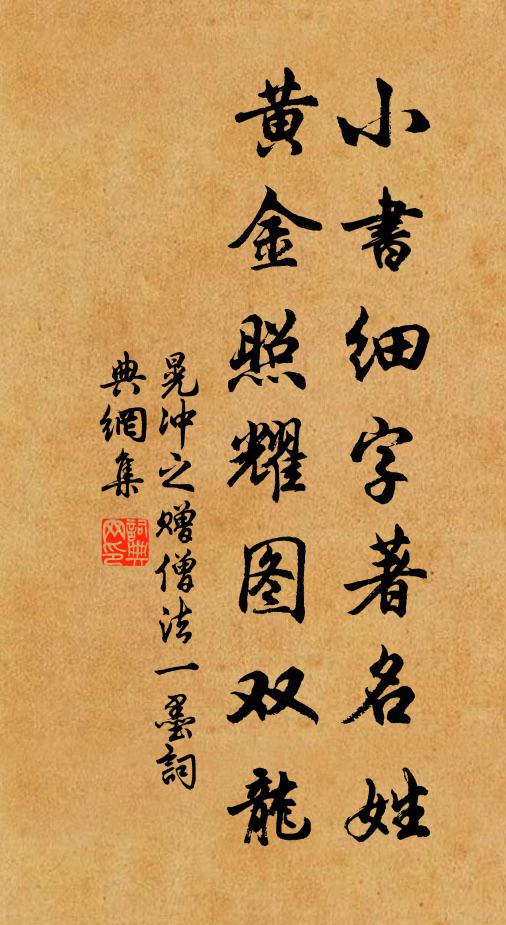 小書細字著名姓
黄金照耀图双龍
晁沖之赠僧法一墨詞
典網集
詞典網印